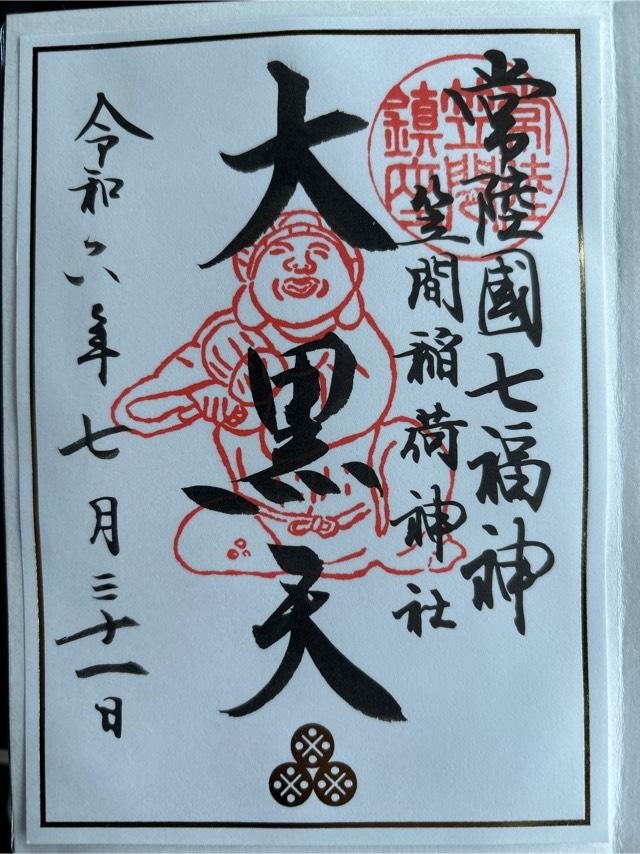 常陸國七福神
笠間稲荷神社
常陸
笠間
鎮座
大黒天
令和六年七月三十一日